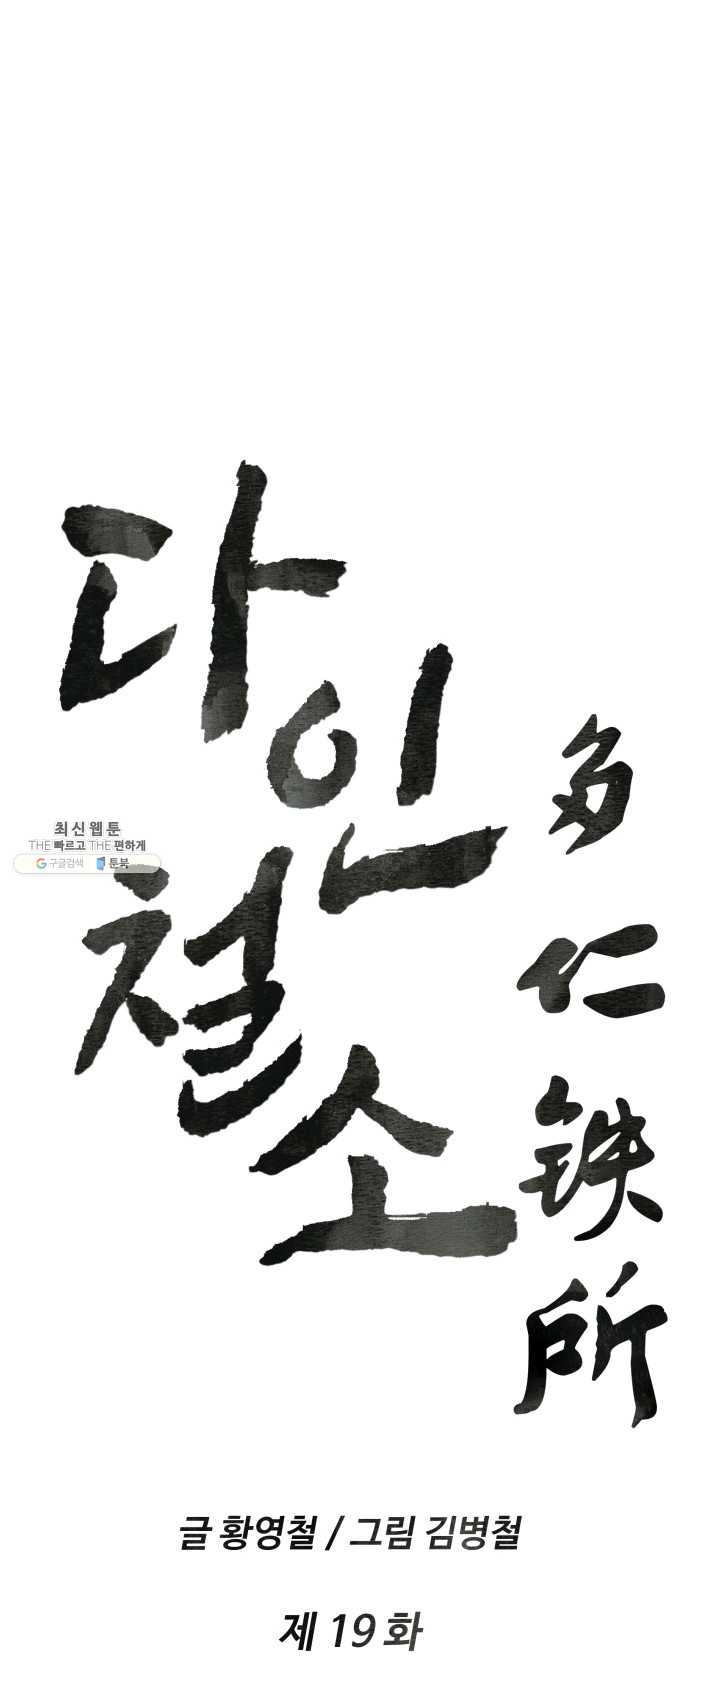 다인
철소
多仁铁所
최신웹툰
THE 빠르고 THE 편하게
구글검색 툰북
글 황영철 / 그림 김병철
제 19 화